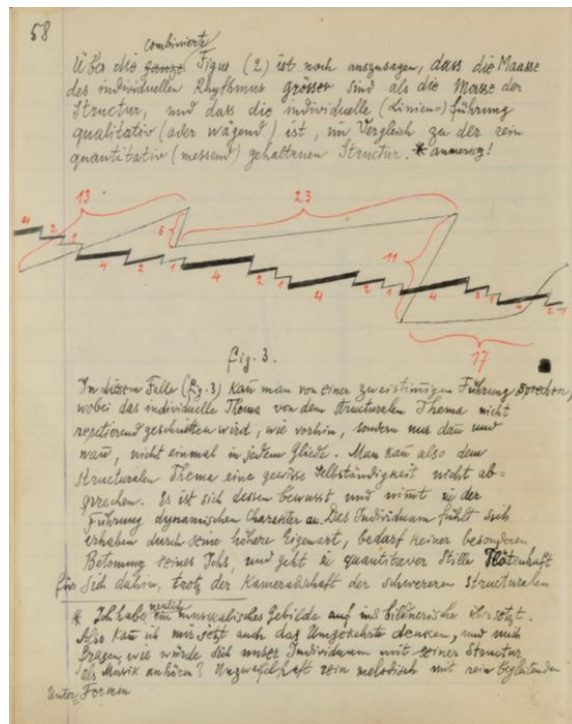 58
combinierte
Über die ganze Figur (2) ist noch auszusagen, dass die Maasse
des individuellen Rhythmus grösser sind als die Masse der
Structur, und dass die individuelle (Linien-)führung
qualitativ (oder wägend) ist, im Vergleich zu der rein
quantitativ (messend) gehaltenen Structur. * anmerkg!
13 23
4 2 1 5
4 2 1 4 2 1 4 2 1 11 4 2 1 4 2 1
17
fig. 3.
In diesem Falle (fig. 3) kan̄ man von einer zweistimmigen Führung sprechen,
wobei das individuelle Thema von dem structuralen Thema nicht
repetierend geschnitten wird, wie vorhin, sondern nur dan̄ und
wan̄, nicht einmal in jedem Gliede. Man kan̄ also dem
structuralen Thema eine gewisse Selbständigkeit nicht ab-
sprechen. Es ist sich dessen bewusst und nim̄t in der
Führung dynamischen Charakter an. Das Individuum fühlt sich
erhaben durch seine höhere Eigenart, bedarf keiner besonderen
Betonung seines Ichs, und geht in quantitaver Stille Flötenhaft
für sich dahin, trotz der Kameradschaft der schwereren structuralen
* Ich habe neulich ein musikalisches Gebilde auf ins bildnerische übersetzt.
Also kan̄ ich mir jetzt auch das Umgekehrte denken, und mich
fragen, wie würde sich unser Individuum mit seiner Structur
als Musik anhören? Unzweifelhaft rein melodisch mit rein begleitenden
Unter Formen